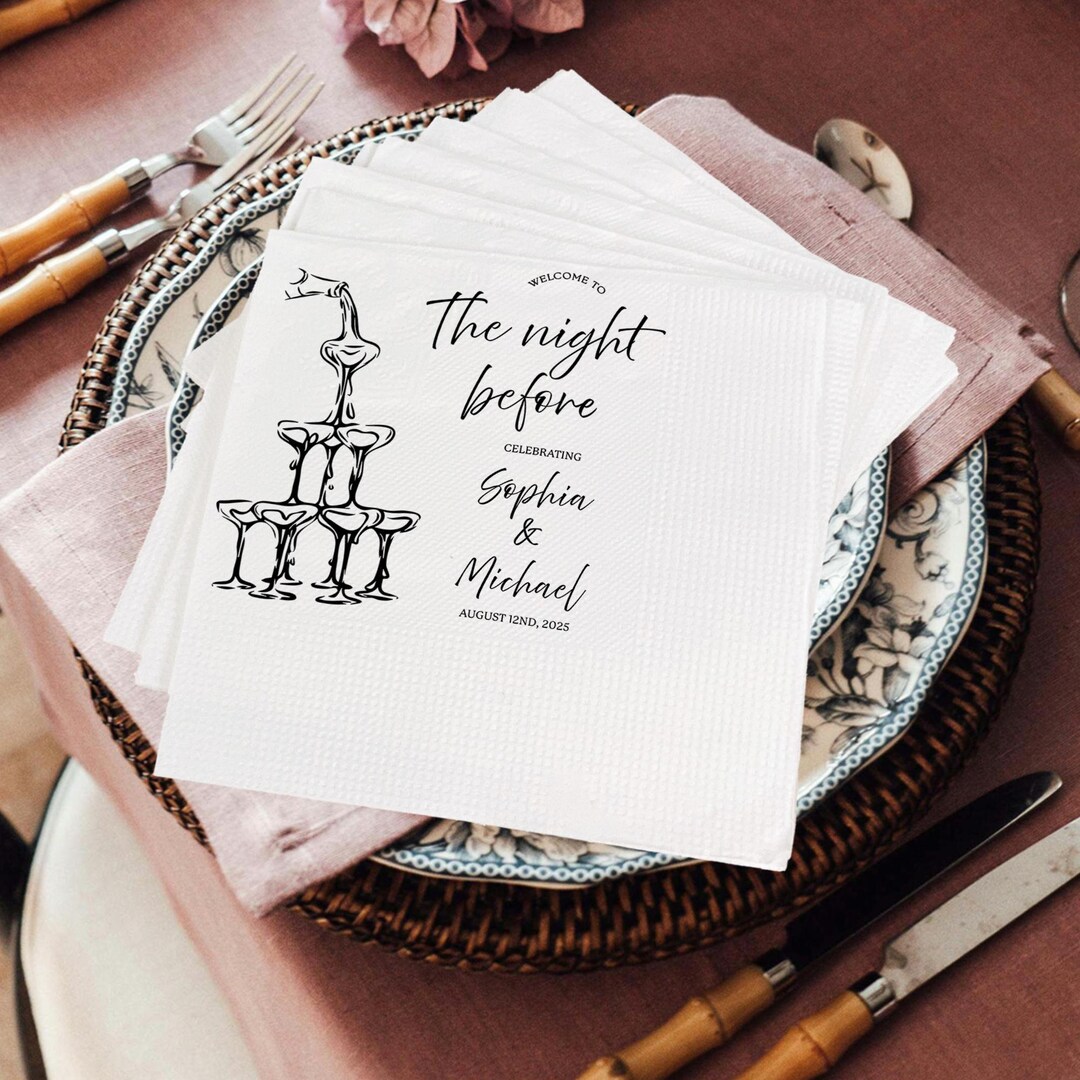 WELCOME TO
The night
before
CELEBRATING
Sophia
&
Michael
AUGUST 12ND, 2025